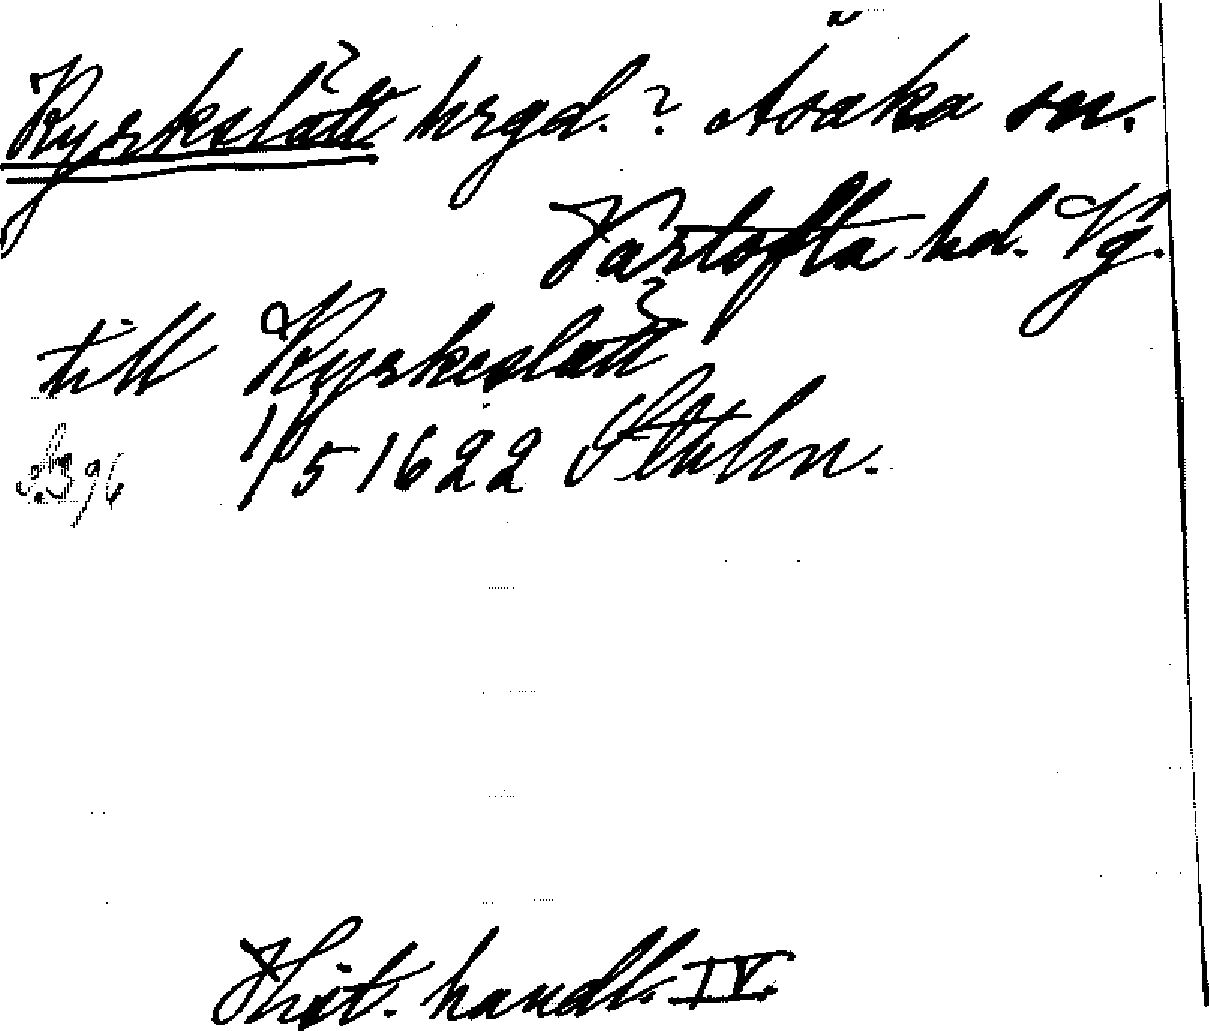 Kyrkslätt hrgd.? Åsaka sn.
Vartofta hd. Vg.
till Kyrkeslätt
1/5 1622 Sthlm.
Hist. handl. IV.